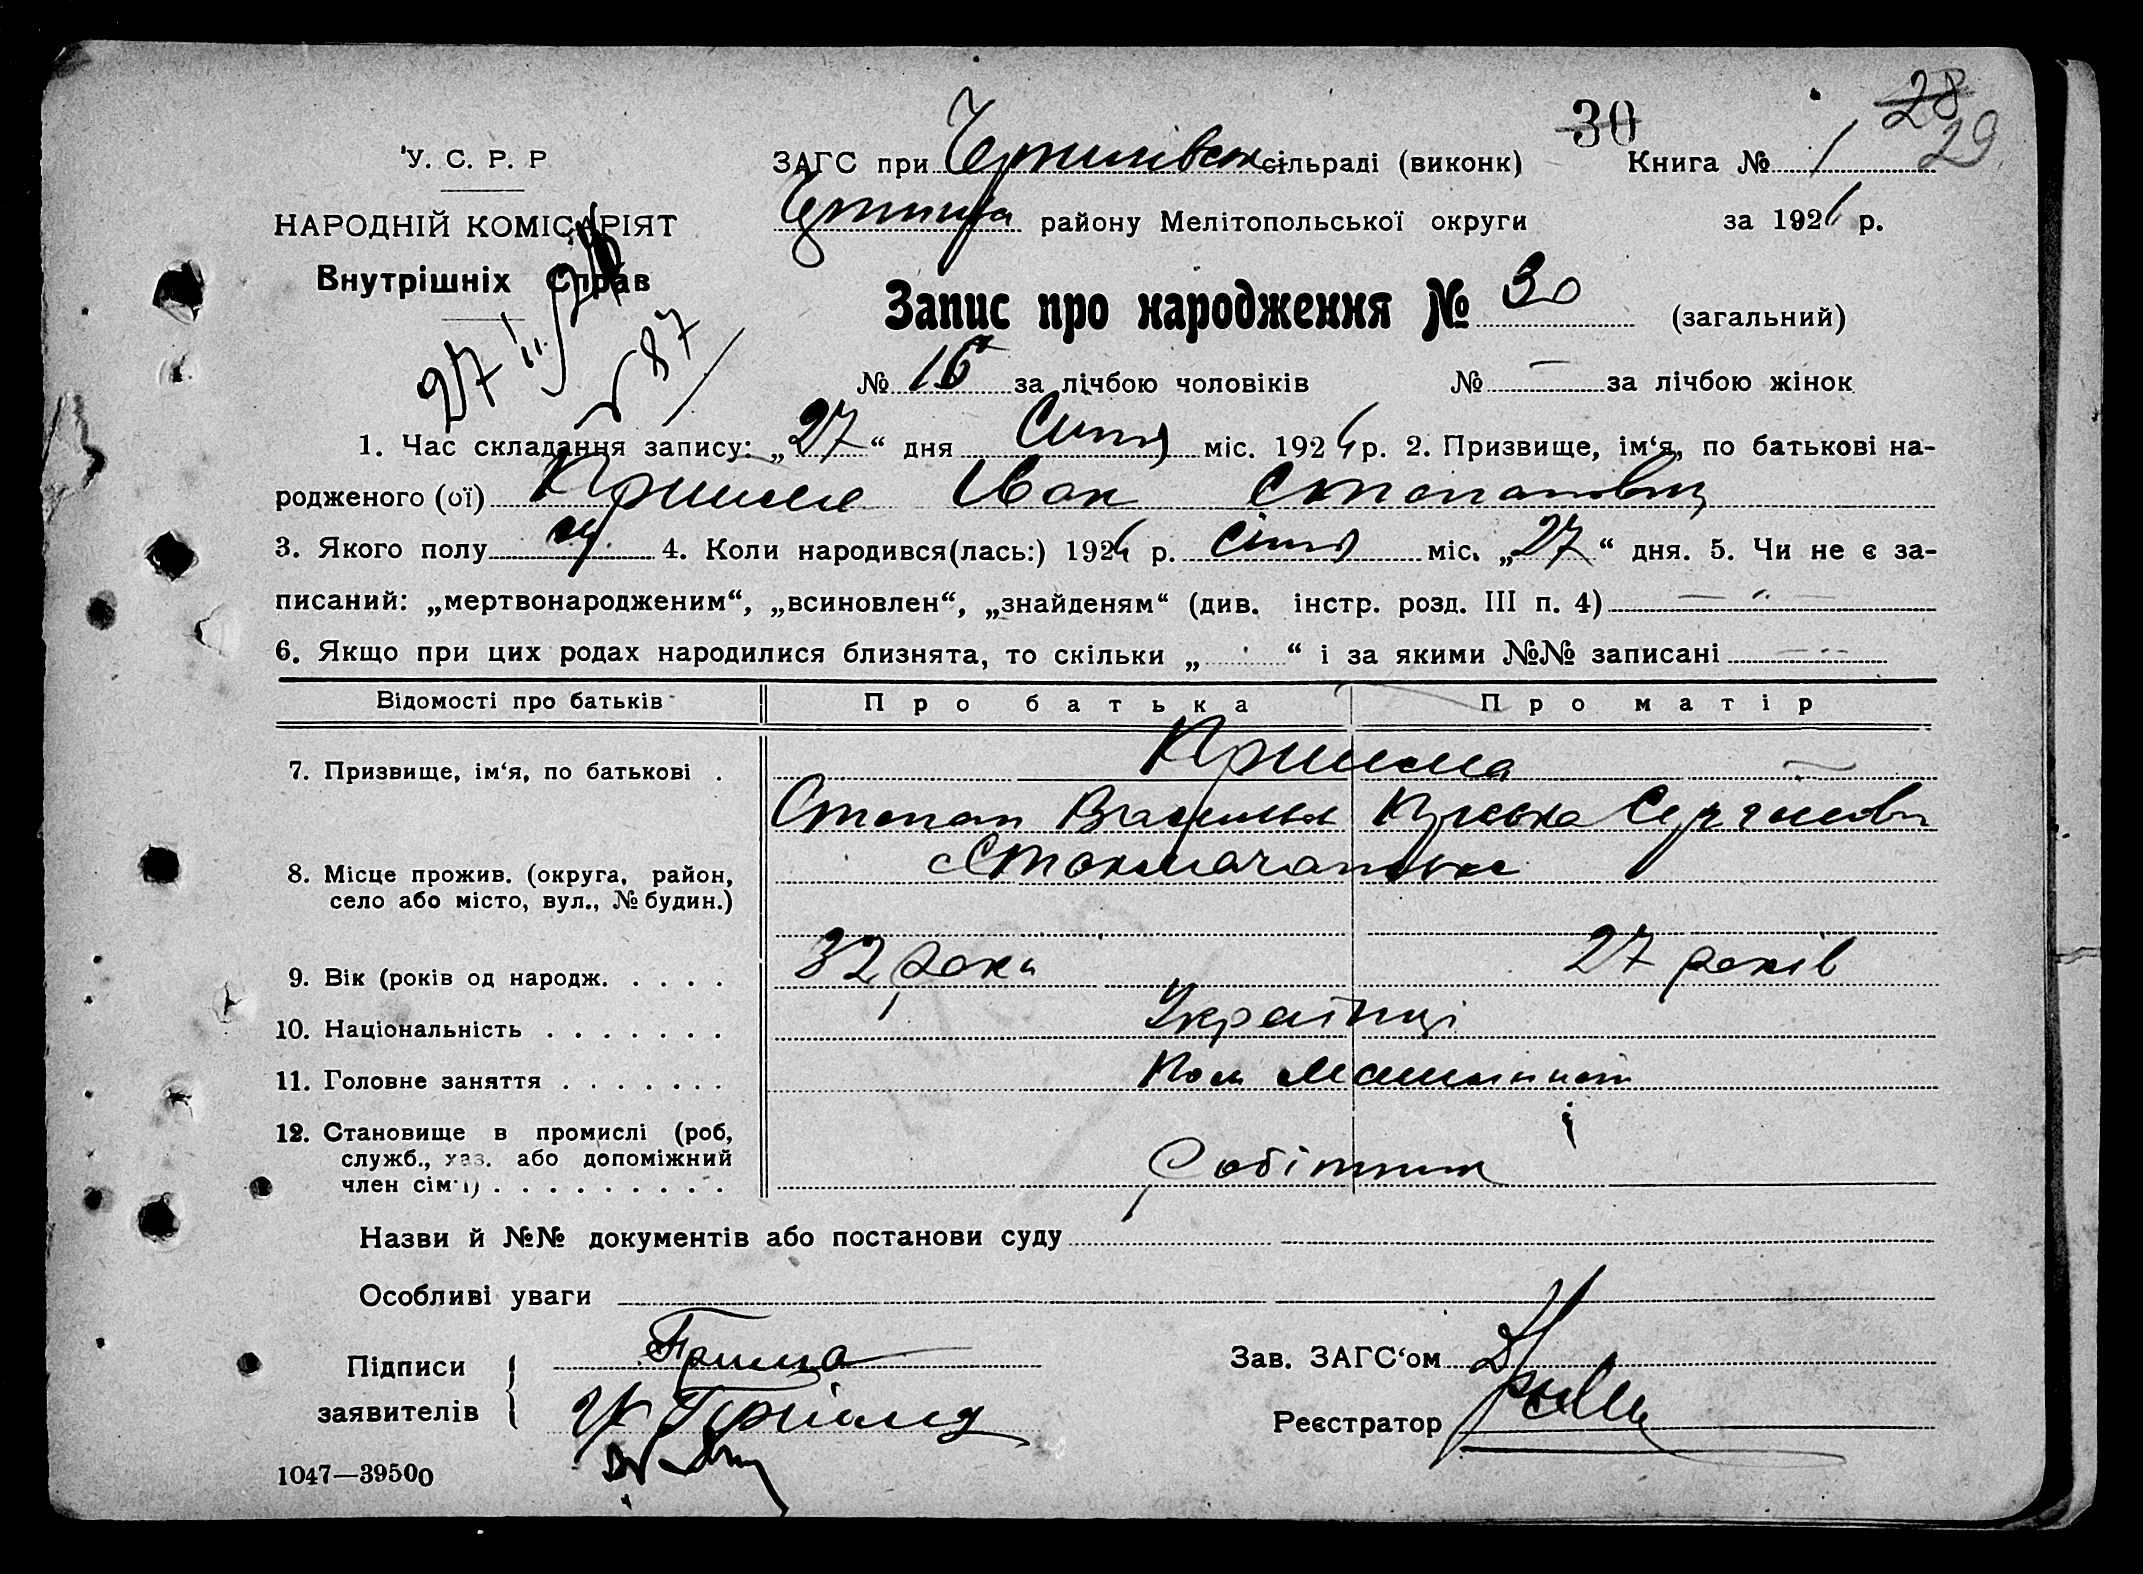 28
30
29
У. С. Р. Р
ЗАГС при сільраді (виконк) Книга № 1
НАРОДНІЙ КОМІСАРІЯТ
району Мелітопольської округи за 1926 р.
Внутрішніх Справ
Запис про народження № 30 (загальний)
27
87
№ 16 за лічбою чоловіків № — за лічбою жінок
1. Час складання запису: „27“ дня Січня міс. 1926 р. 2. Призвище, ім‘я, по батькові на-
родженого (ої) Приима Іван Степанович
3. Якого полу ч. 4. Коли народився(лась:) 1926 р. Січня міс. „27“ дня. 5. Чи не є за-
писаний: „мертвонародженим“, „всиновлен“, „знайденям“ (див. інстр. розд. III п. 4) — " —
6. Якщо при цих родах народилися близнята, то скільки „ “ і за якими №№ записані
Відомості про батьків Про батька Про матір
7. Призвище, ім‘я, по батькові . Приима
Степан
8. Місце прожив. (округа, район,
село або місто, вул., № будин.)
9. Вік (років од народж. . . . . 32 роки 27 років
10. Національність . . . . . . . Українці
11. Головне заняття . . . . . . .
12. Становище в промислі (роб,
служб., хаз. або допоміжний
член сім‘ї) . . . . . . . . . Робітник
Назви й №№ документів або постанови суду
Особливі уваги
Підписи Приима Зав. ЗАГС‘ом
заявителів Реєстратор
1047—39500